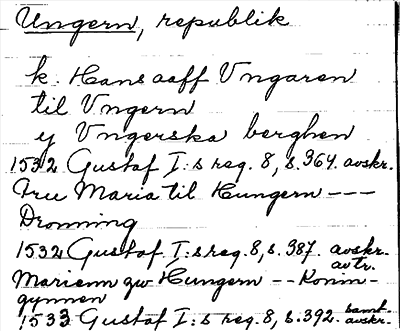 Ungern, republik
k. Hans aaff Vngaren
til Vngern
y Vngerska berghen
1532 Gustaf I:s reg. 8, s. 364. avskr.
Fru Maria til Hungern ---
Dronning
1532 Gustaf I:s reg. 8, s. 387. avskr.
avtr.
Mariem zw Hungern -- Konin-
gynnen
1533 Gustaf I:s reg. 8, s. 392. samt. avskr.